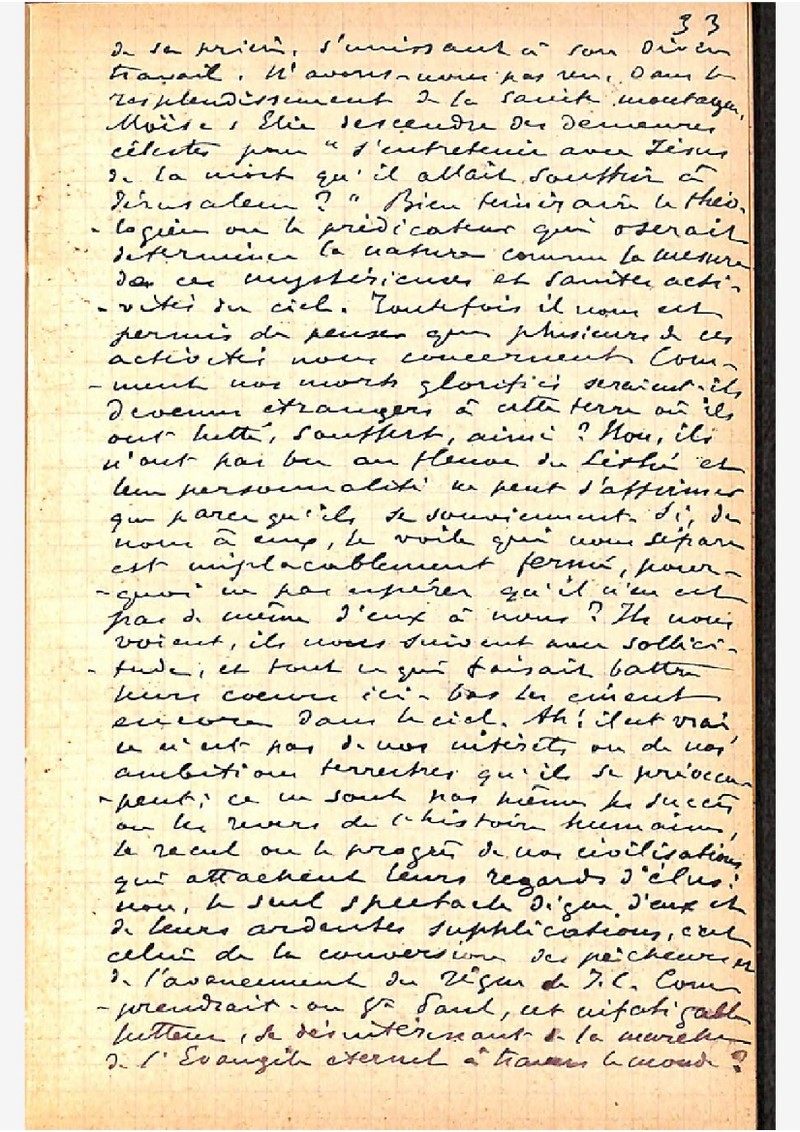 33
de sa prière, s'unissant à son divin
travail. N'avons-nous pas vu, dans le
resplendissement de la sainte montagne,
Moïse & Elie descendre des demeures
célestes pour " s'entretenir avec Jésus
de la mort qu'il allait souffrir à
Jérusalem ? " Bien téméraire le théo-
-logien ou le prédicateur qui oserait
déterminer la nature comme la mesure
de ces mystérieuses et saintes acti-
-vités du ciel. Toutefois il nous est
permis de penser que plusieurs de ces
activités nous concernent. Com-
-ment nos morts glorifiés seraient-ils
devenus étrangers à cette terre où ils
ont lutté, souffert, aimé ? Non, ils
n'ont pas bu au fleuve du Léthé et
leur personnalité ne peut s'affirmer
que parce qu'ils se souviennent. Si, de
nous à eux, le voile qui nous sépare
est implacablement fermé, pour-
-quoi ne pas espérer qu'il n'en est
pas de même d'eux à nous ? Ils nous
voient, ils nous suivent avec sollici-
-tude, et tout ce qui faisait battre
leurs coeurs ici-bas les émeut
encore dans le ciel. Ah! il est vrai,
ce n'est pas de nos intérêts ou de nos
ambitions terrestres qu'ils se préoccu-
-pent; ce ne sont pas même les succès
ou les revers de l'histoire humaine,
le recul ou le progrès de nos civilisations
qui attachent leurs regards d'élus:
non, le seul spectacle digne d'eux et
de leurs ardentes supplications, c'est
celui de la conversion des pécheurs et
de l'avancement du règne de J.C. Com
-prendrait-on St Paul, cet infatigable
lutteur, se désintéressant de la marche
de l'Evangile éternel à travers le monde ?